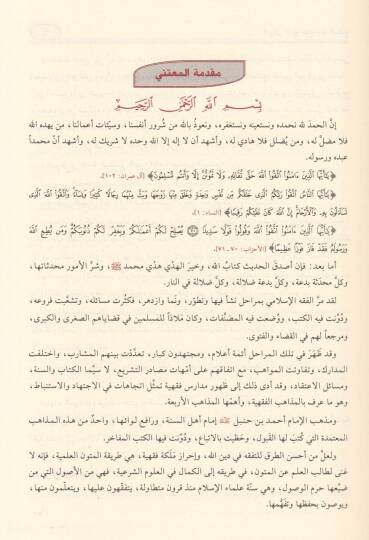 مقدمة المعتني
بِسْمِ اللَّهِ الرَّحْمَٰنِ الرَّحِيمِ
إنَّ الحمدَ لله نحمده ونستعينه ونستغفره، ونعوذُ بالله من شُرور أنفسنا، وسيِّئات أعمالنا، من يهده الله
فلا مضلَّ له، ومن يُضلل فلا هادي له، وأشهد أن لا إله إلا الله وحده لا شريك له، وأشهد أنّ محمداً
عبده ورسوله.
﴿يَا أَيُّهَا الَّذِينَ ءَامَنُوا اتَّقُوا اللَّهَ حَقَّ تُقَاتِهِ، وَلَا تَمُوتُنَّ إِلَّا وَأَنتُم مُّسْلِمُونَ﴾ [آل عمران: ١٠٢].
﴿يَا أَيُّهَا النَّاسُ اتَّقُوا رَبَّكُمُ الَّذِي خَلَقَكُم مِّن نَّفْسٍ وَاحِدَةٍ وَخَلَقَ مِنْهَا زَوْجَهَا وَبَثَّ مِنْهُمَا رِجَالًا كَثِيرًا وَنِسَاءً وَاتَّقُوا اللَّهَ الَّذِي
تَسَاءَلُونَ بِهِ، وَالْأَرْحَامَ إِنَّ اللَّهَ كَانَ عَلَيْكُمْ رَقِيبًا﴾ [النساء: ١].
﴿يَا أَيُّهَا الَّذِينَ ءَامَنُوا اتَّقُوا اللَّهَ وَقُولُوا قَوْلًا سَدِيدًا ۝٧٠ يُصْلِحْ لَكُمْ أَعْمَالَكُمْ وَيَغْفِرْ لَكُمْ ذُنُوبَكُمْ وَمَن يُطِعِ اللَّهَ
وَرَسُولَهُ فَقَدْ فَازَ فَوْزًا عَظِيمًا﴾ [الأحزاب: ٧٠ - ٧١].
أما بعد: فإن أصدقَ الحديث كتابُ الله، وخيرَ الهدْي هدْي محمد ﷺ، وشرَّ الأمور محدثاتها،
وكلَّ محدَثة بدعة، وكلَّ بدعة ضلالة، وكلَّ ضلالة في النار.
لقد مرَّ الفقه الإسلامي بمراحل نشأ فيها وتطوّر، ونَما وازدهر، فكثُرت مسائله، وتشعَّبت فروعه،
ودُوّنت فيه الكتب، ووُضعت فيه المصنَّفات، وكان مَلاذاً للمسلمين في قضاياهم الصغرى والكبرى،
ومرجعاً لهم في القضاء والفتوى.
وقد ظَهَرَ في تلك المراحل أئمة أعلام، ومجتهدون كبار، تعدَّدت بينهم المشارب، واختلفت
المدارك، وتفاوتت المواهب، مع اتفاقهم على أمّهات مصادر التشريع، لا سيَّما الكتاب والسنة،
ومسائل الاعتقاد، وقد أدى ذلك إلى ظهور مدارس فقهية تمثّل اتجاهات في الاجتهاد والاستنباط،
وهو ما عرف بالمذاهب الفقهية، وأهمّها المذاهب الأربعة.
ومذهب الإمام أحمد بن حنبل إمام أهل السنة، ورافع لوائها، واحدٌ من هذه المذاهب
المعتمدة التي كُتبَ لها القَبول، وحَظيت بالاتباع، ودُوِّنت فيها الكتب المفاخر.
ولعلَّ من أحسن الطرق للتفقه في دين الله، وإحراز مَلَكة فقهية، هي طريقة المتون العلمية، فإنه لا
غنى لطالب العلم عن المتون، في طريقه إلى الكمال في العلوم الشرعية، فهي من الأصول التي من
ضيَّعها حرم الوصول، وهي سنّة علماء الإسلام منذ قرون متطاولة، يتفقّهون عليها، ويتعلّمون منها،
ويوصون بحفظها وتفهُّمها.